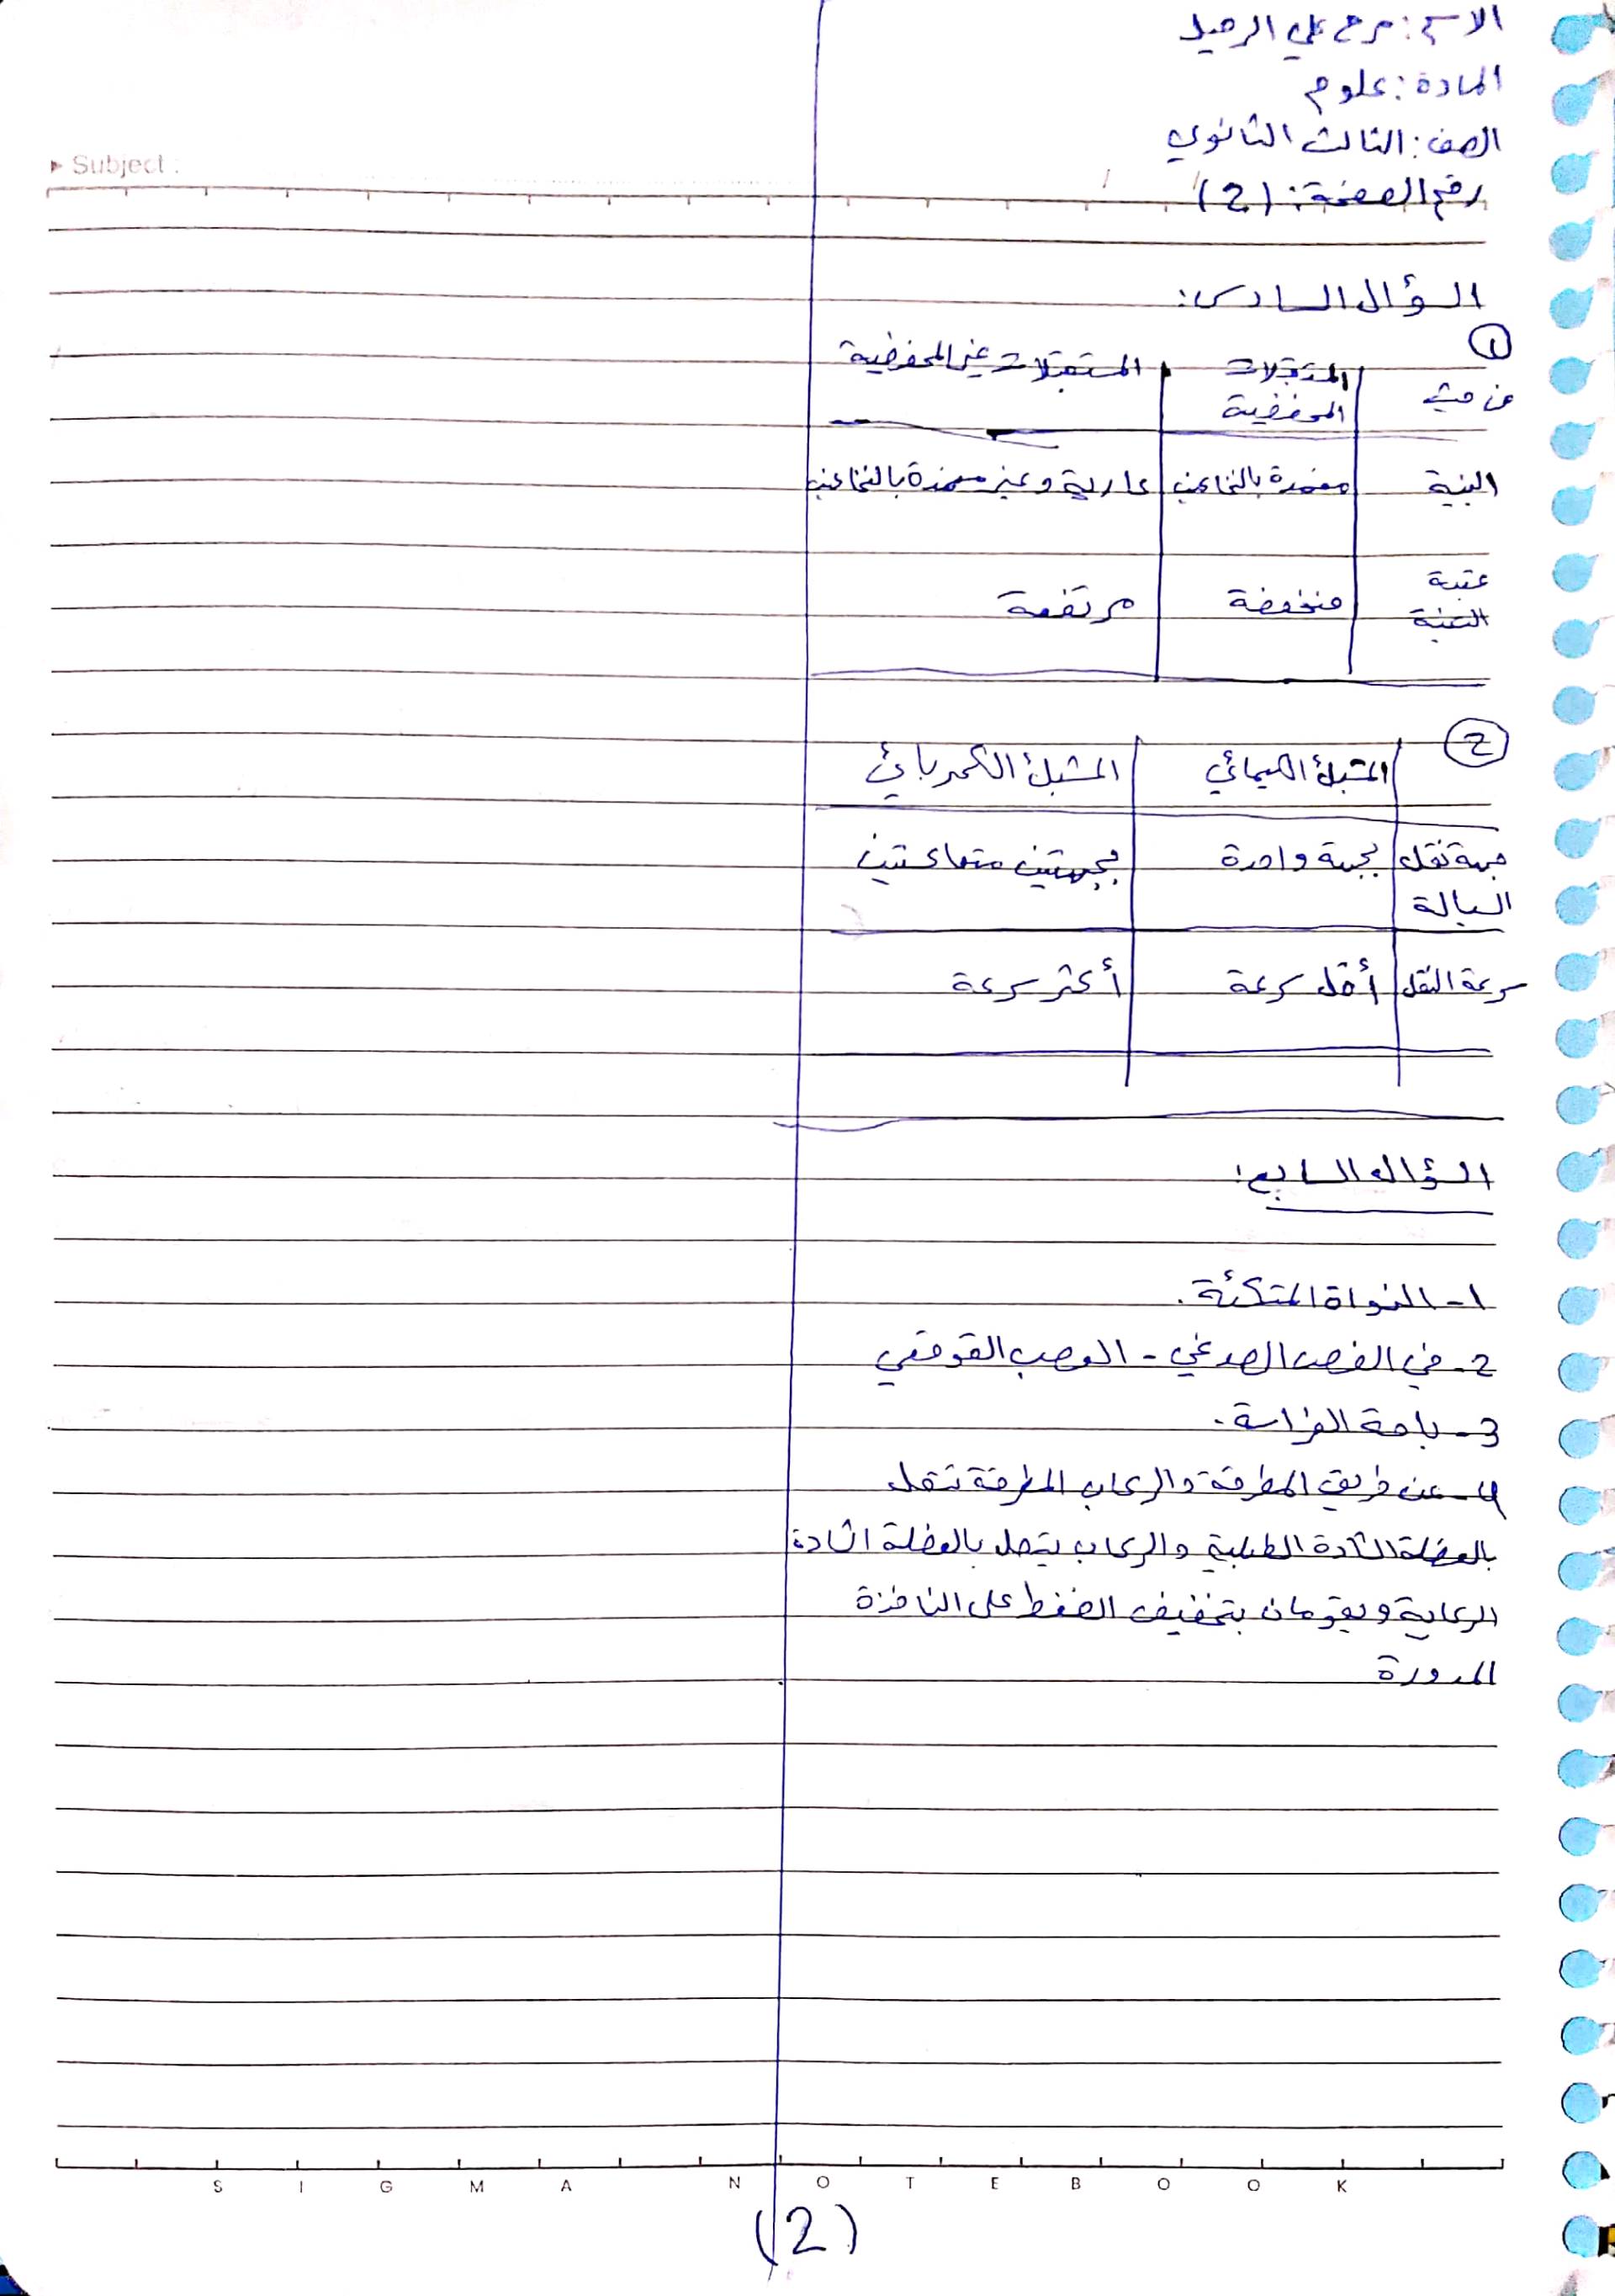 الاسم: مرح علي الرحيل
المادة: علوم
الصف: الثالث الثانوي
Subject :
رقم الصفحة: (2)
السؤال السادس:
①
من حيث | المستقبلات المحفظية | المستقبلات غير المحفظية
البنية | مغمدة بالنخاعين | عارية وغير مغمدة بالنخاعين
عتبة التنبيه | منخفضة | مرتفعة
②
المشبك الكيميائي | المشبك الكهربائي
جهة نقل السيالة | بجهة واحدة | بجهتين متعاكستين
سرعة النقل | أقل سرعة | أكثر سرعة
السؤال السابع:
1- النواة المتكئة.
2- في الفص الصدغي - العصب القوقعي
3- باحة الفراسة.
4- عن طريق المطرقة والركاب المطرقة تتصل
بالعضلة الشادة الطبلية والركاب يتصل بالعضلة الشادة
الركابية ويقومان بتخفيف الضغط على النافذة
المدورة
SIGMA NOTEBOOK
(2)